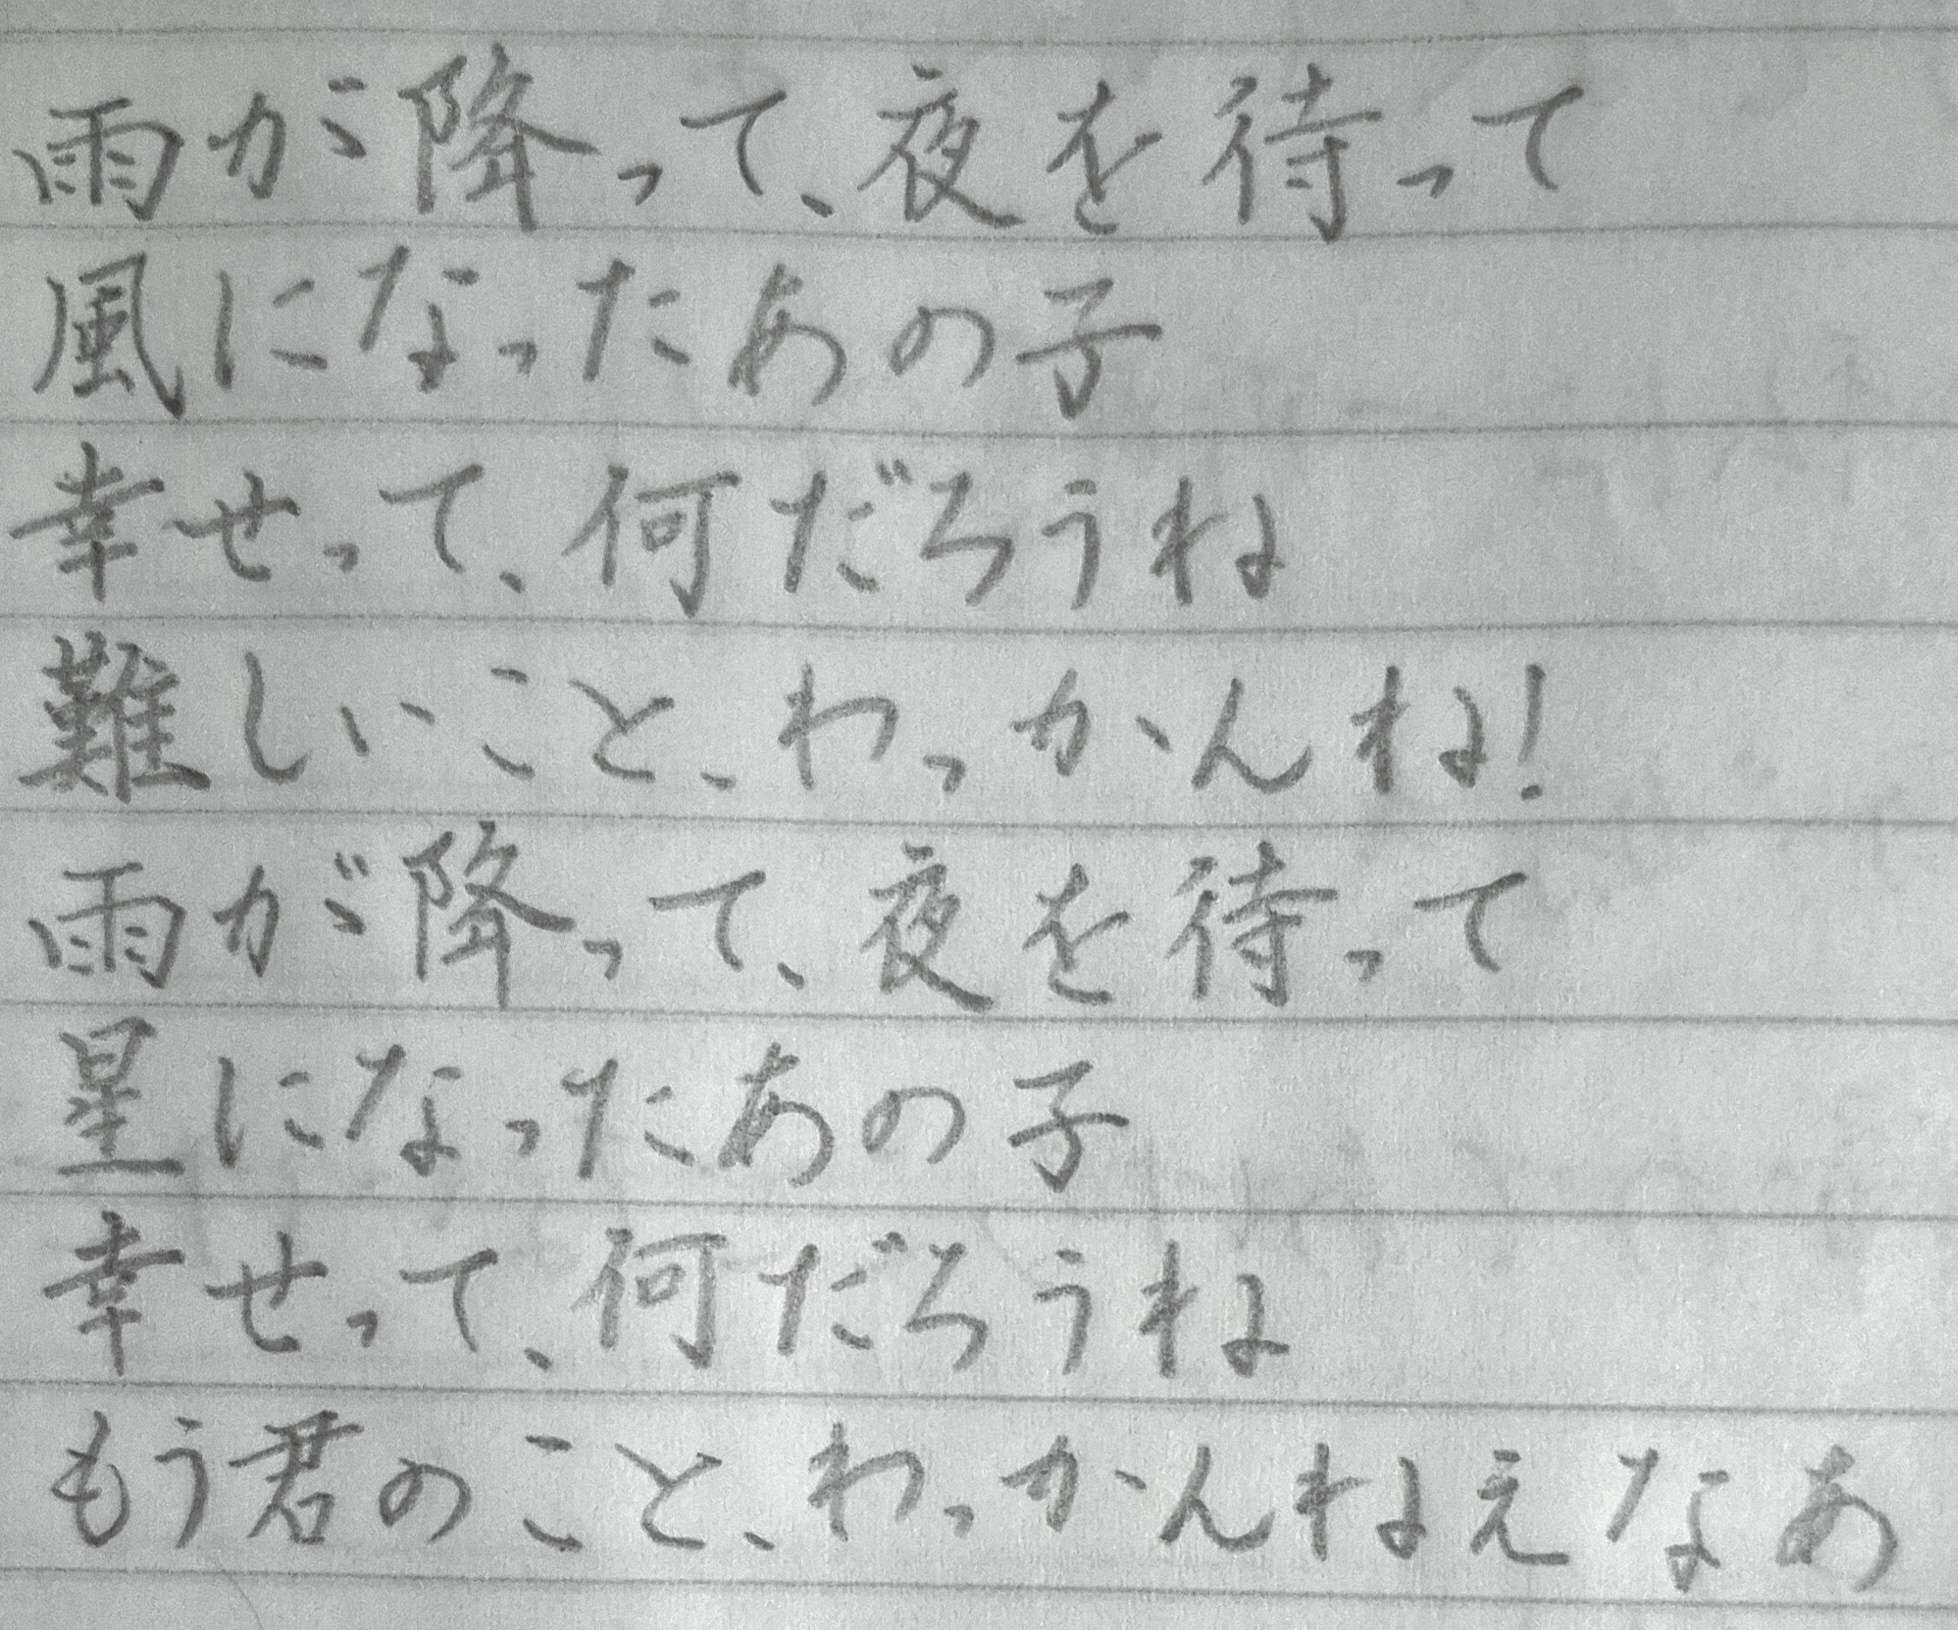 雨が降って、夜を待って
風になったあの子
幸せって、何だろうね
難しいこと、わっかんね!
雨が降って、夜を待って
星になったあの子
幸せって、何だろうね
もう君のこと、わっかんねえなあ